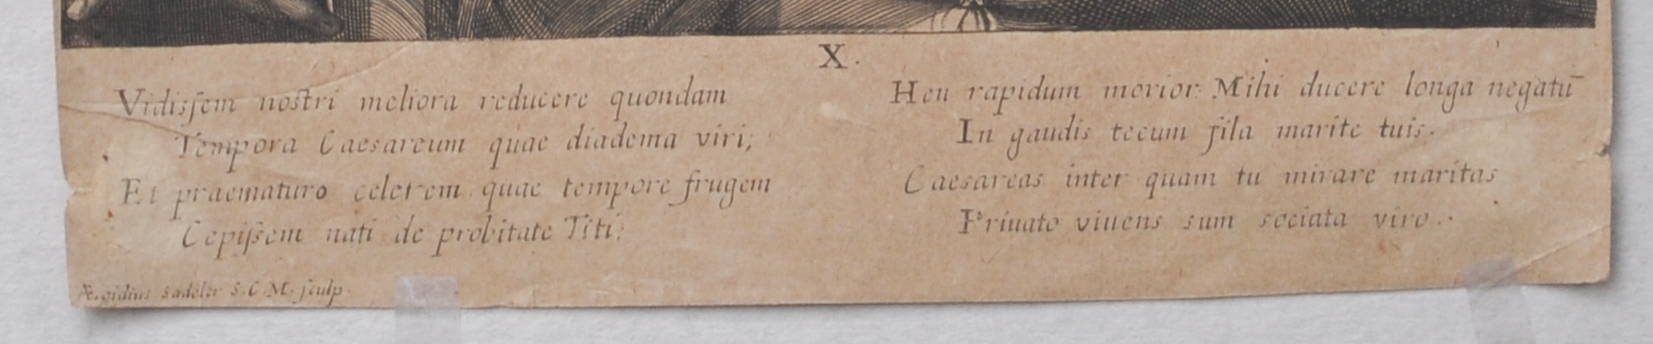 X.
Vidisſem nostri meliora reducere quondam
Tempora Caesareum quae diadema viri;
Et praematuro celerem quae tempore frugem
Cepiſsem nati de probitate Titi:
Heu rapidum morior: Mihi ducere longa negatū
In gaudis tecum fila marite tuis.
Caesareas inter quam tu mirare maritas
Priuato viuens sum sociata viro.
Ægidius Sadeler S. C. M. ſculp.